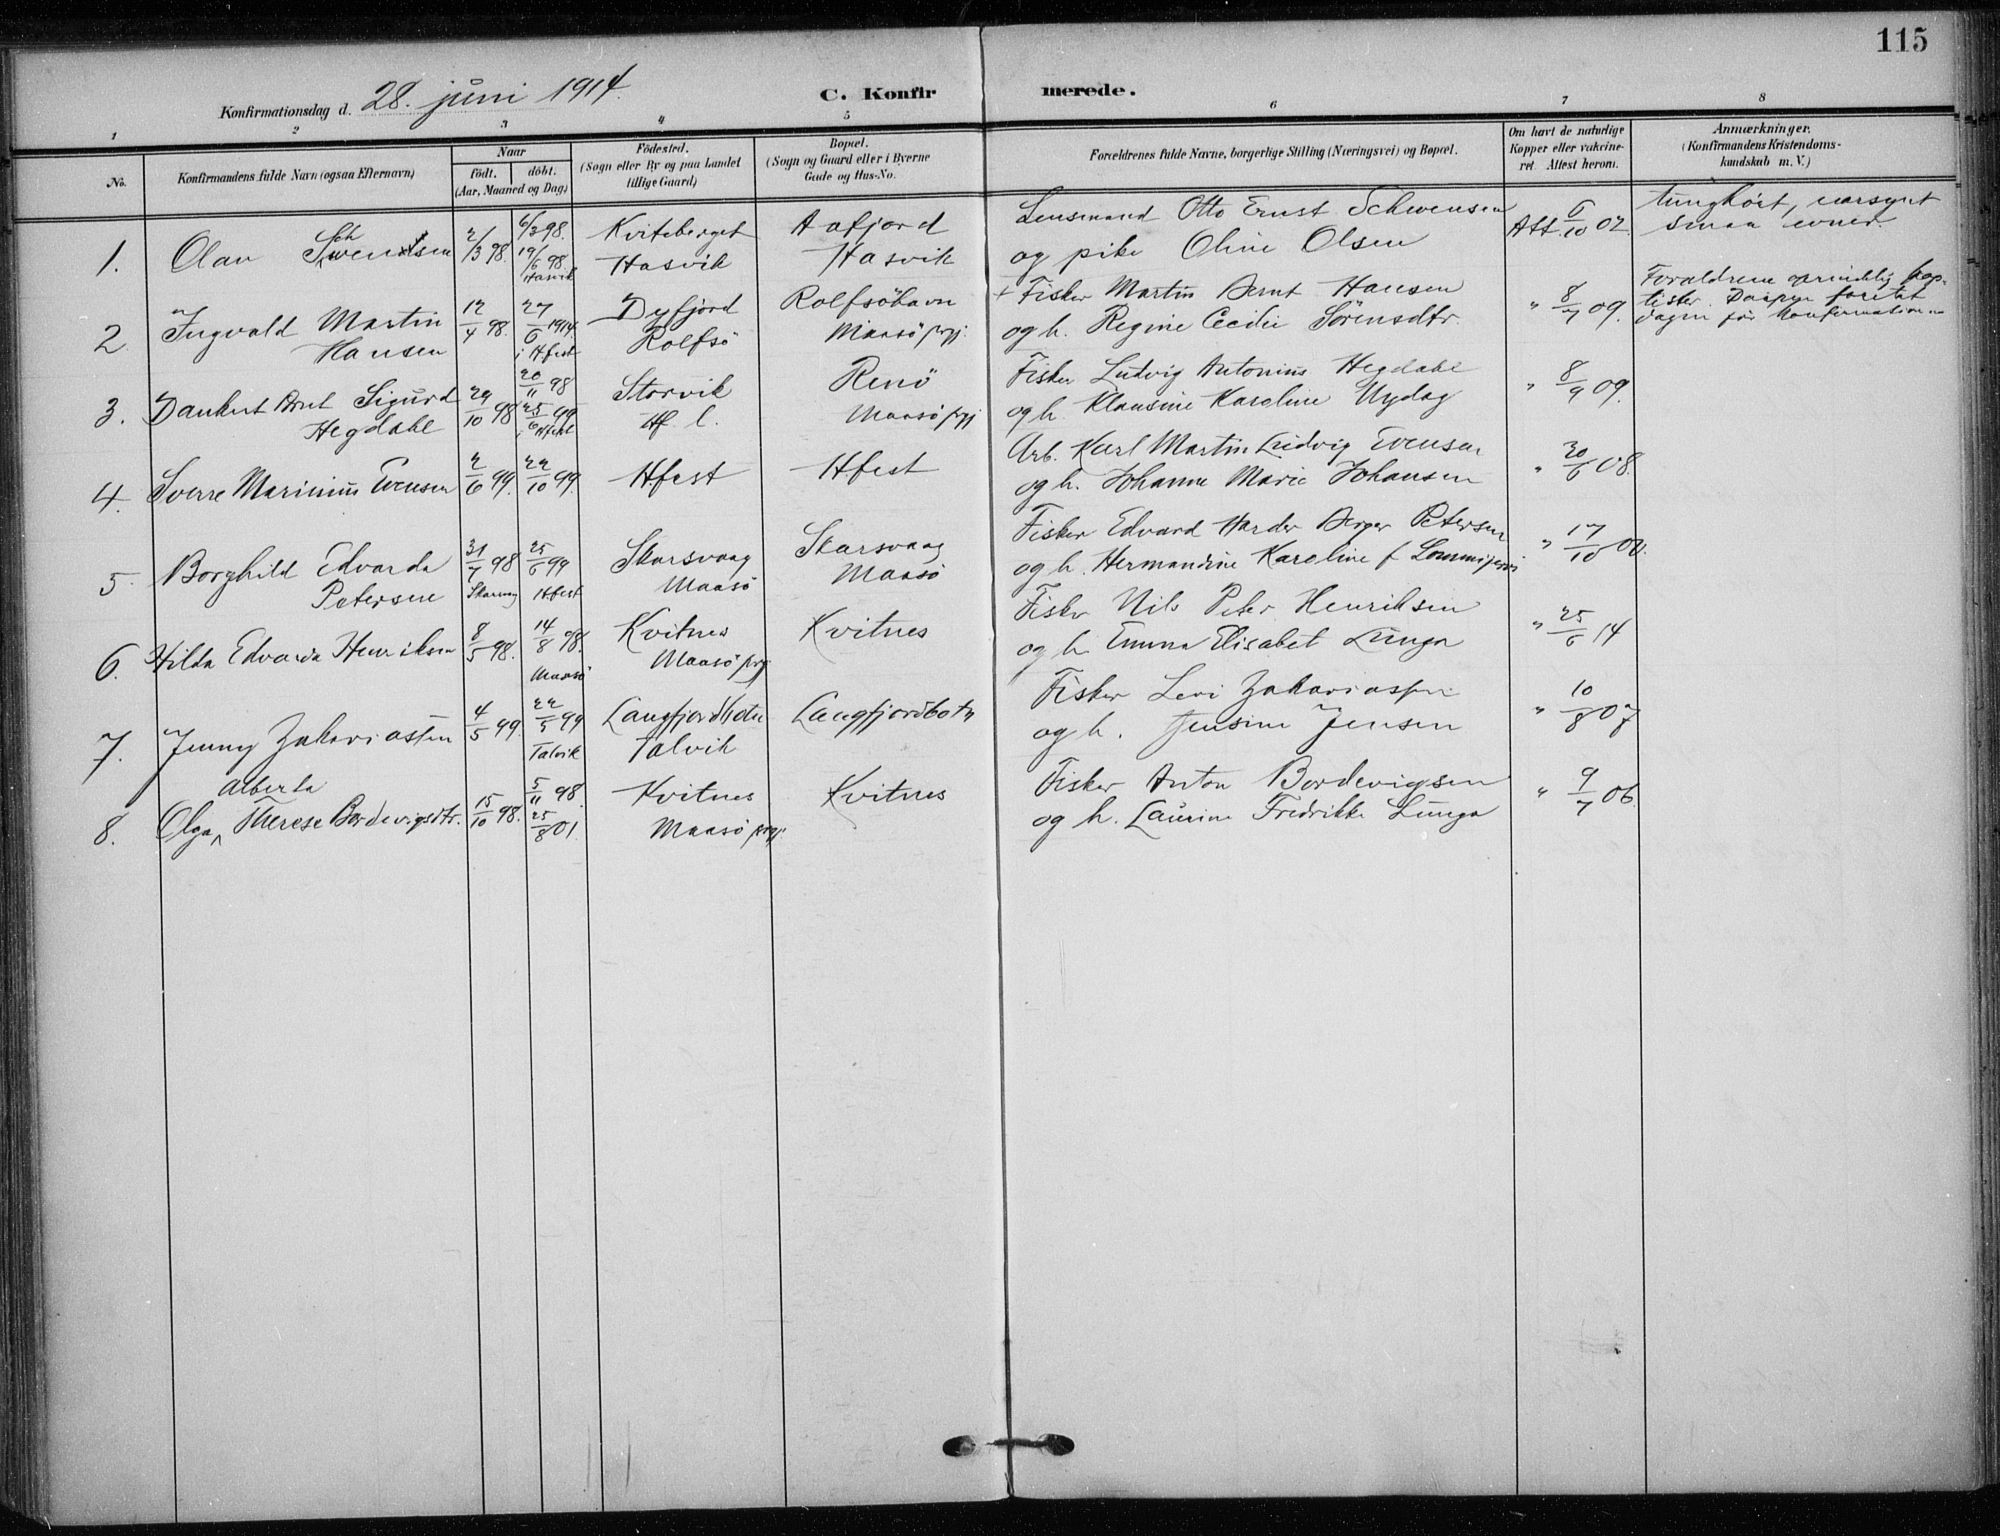 115
Konfirmationsdag d. 28. juni 1914.
C. Konfirmerede.
1 2 3 4 5 6 7 8
No.
Konfirmandens fulde Navn (ogsaa Efternavn)
Naar
födt. döbt.
(Aar, Maaned og Dag)
Födested.
(Sogn eller By og paa Landet
tillige Gaard)
Bopæl.
(Sogn og Gaard eller i Byerne
Gade og Hus-No.
Forældrenes fulde Navne, borgerlige Stilling (Næringsvei) og Bopæl.
Om havt de naturlige
Kopper eller vakcine-
ret. Attest herom.
Anmærkninger.
(Konfirmandens Kristendoms-
kundskab m. V.)
1. Olav Schwensen 2/3 98. 6/3 98. Kviteberget Aafjord Lensmand Otto Ernst Schwensen Att 6/10 02. tunghört, nærsynt
19/6 98. Hasvik Hasvik Hasvik og pike Oline Olsen smaa evner.
2. Ingvald Martin 12/4 98. 27/6 1914. Dyfjord Rolfsöhavn + Fisker Martin Bernt Hansen " 8/7 09. Forældrene oprindelig bap-
Hansen i Hfest Rolfsö Maasö prgj. og h. Regine Cecilie Sörensdtr. tister. Daapen foretat
dagen för konfirmationen
3. Dankert Arnt Sigurd 29/10 98 20/11 98 Storvik Renö Fisker Ludvig Antonius Hegdahl " 8/9 09.
Hegdahl 25/6 99 i Hfest Hf. l. Maasö prgj og h. Klausine Karoline Nydag
4. Sverre Marinius Evensen 2/6 99. 22/10 99. Hfest Hfest Arb. Karl Martin Ludvig Evensen " 20/6 08.
og h. Johanne Marie Johansen
5. Borghild Edvarda 31/7 98 25/6 99 Skarsvaag Skarsvaag Fisker Edvard Harder Berger Petersen " 17/10 00.
Petersen Hfest Maasö Maasö og h. Hermandine Karoline f.
6. Hilda Edvarda Henriksen 8/5 98. 14/8 98. Kvitnes Kvitnes Fisker Nils Peter Henriksen " 25/6 14
Maasö Maasö prgj og h. Emma Elisabet Lunga
7. Jenny Zakariassen 4/5 99. 22/5 99 Langfjordbotn Langfjordbotn Fisker Levi Zakariassen " 10/8 07
Talvik Talvik og h. Jensine Jensen
Alberta
8. Olga Therese Bordevigsdtr. 15/10 98. 5/11 98. Kvitnes Kvitnes Fisker Anton Bordevigsen " 9/7 06.
25/8 01. Maasö prgj. og h. Laurine Fredrikke Lunga